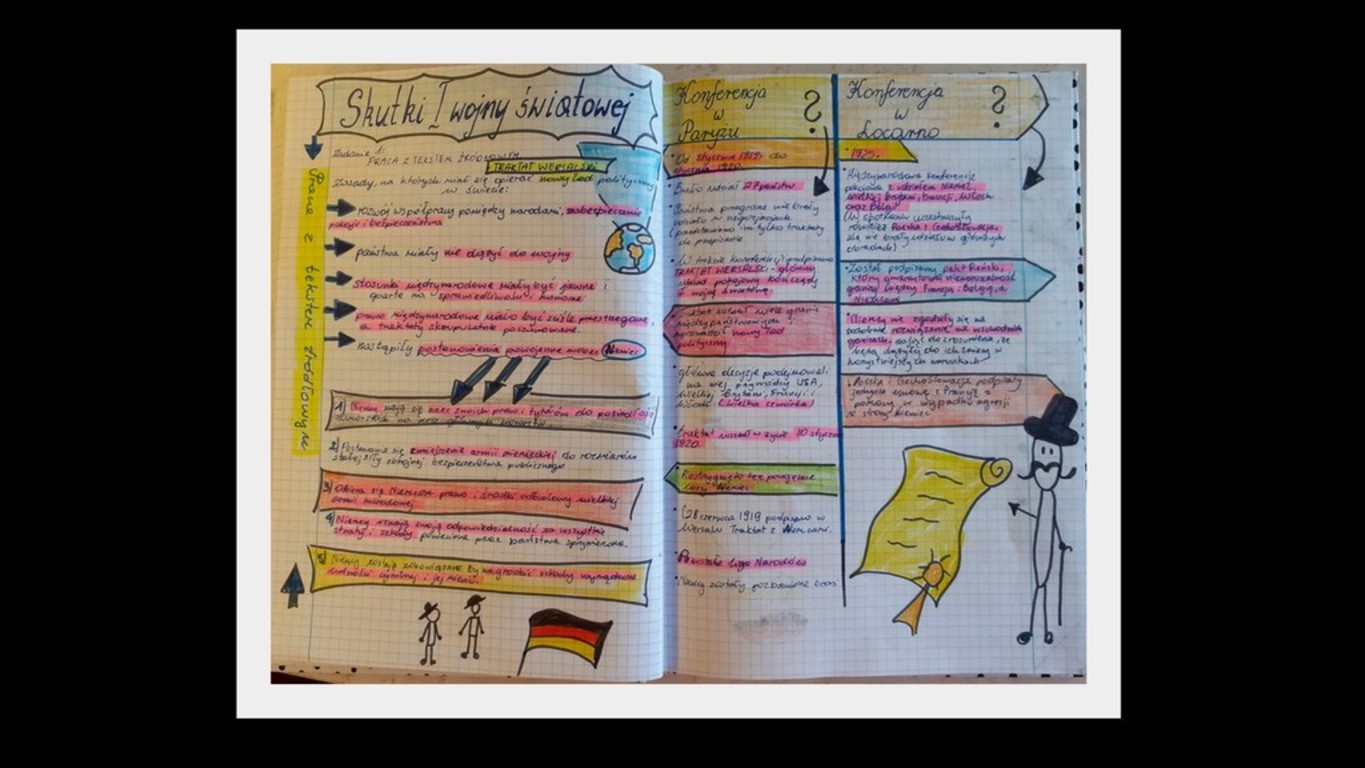 Skutki I wojny światowej
Zadanie 1:
PRACA Z TEKSTEM ŹRÓDŁOWYM
TRAKTAT WERSALSKI
Zasady, na których miał się opierać nowy ład polityczny
w świecie:
Praca z tekstem źródłowym
rozwój współpracy pomiędzy narodami, zabezpieczenie
pokoju i bezpieczeństwa
państwa miały nie dążyć do wojny
stosunki międzynarodowe miały być jawne i
oparte na sprawiedliwości i honorze
prawo międzynarodowe miało być ściśle przestrzegane,
a traktaty skrupulatnie poszanowane.
nastąpiły postanowienia powojenne wobec Niemiec
1) Niemcy mają się zrzec zwoich praw i tytułów do
na rzecz głównych mocarstw.
2) zmniejszenie armii niemieckiej do rozmiarów
stałej siły zbrojnej bezpieczeństwa publicznego
3) Odbiera się Niemcom prawo i środki odbudowy wielkiej
armii narodowej
4) Niemcy uznają swoją odpowiedzialność za wszystkie
straty i szkody, poniesione przez państwa sprzymierzone.
5) Niemcy zostają zobowiązane by nagrodzić szkody wyrządzone
ludności cywilnej i jej mieniu.
Konferencja
w
Paryżu
?
• Od stycznia 1919r do
stycznia 1920.
• Brało udział 27 państw.
• Państwa przegrane nie brały
udziału w negocjacjach
(przedstawiono im tylko traktaty
do podpisania
• W trakcie konferencji podpisano
TRAKTAT WERSALSKI - główny
układ pokojowy kończący
I wojnę światową
• Traktat ustalił wiele granic
międzypaństwowych i
wprowadził nowy ład
polityczny
• główne decyzje podejmowali
na niej przywódcy USA,
Wielkiej Brytanii, Francji i
Włoch (Wielka czwórka)
• Traktat wszedł w życie 10 stycznia
1920.
• Rozstrzygnięto też
Niemiec
• (28 czerwca 1919 podpisano w
Wersalu Traktat z Niemcami.
• Powstała Liga Narodów
• Niemcy zostały pozbawione
Konferencja
w
Locarno
?
• 1925r.
• Międzynarodowa konferencja
pokojowa z udziałem Niemiec,
Wielkiej Brytanii, Francji, Włoch
oraz Belgii
(W spotkaniu uczestniczyły
również Polska i Czechosłowacja,
ale nie brały udziału w głównych
obradach)
• Został podpisany pakt Reński,
który gwarantował nienaruszalność
granicy między Francją i Belgią, a
Niemcami
• Niemcy nie zgodziły się na
podobne rozwiązanie na wschodnich
granicach, dając do zrozumienia, że
będą dążyły do ich zmiany w
• Polska i Czechosłowacja podpisały
jedynie umowę z Francją o
pomocy w wypadku agresji
ze strony Niemiec